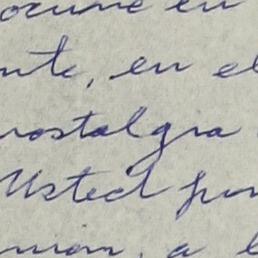 ocurre en
nte, en el
nostalgia
Usted por